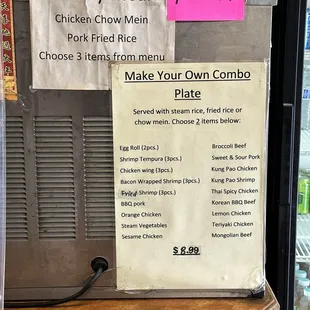 Chicken Chow Mein
Pork Fried Rice
Choose 3 items from menu
Make Your Own Combo
Plate
Served with steam rice, fried rice or
chow mein. Choose 2 items below:
Egg Roll (2pcs.)
Shrimp Tempura (3pcs.)
Chicken wing (3pcs.)
Bacon Wrapped Shrimp (3pcs.)
Fried Shrimp (3pcs.)
BBQ pork
Orange Chicken
Steam Vegetables
Sesame Chicken
Broccoli Beef
Sweet & Sour Pork
Kung Pao Chicken
Kung Pao Shrimp
Thai Spicy Chicken
Korean BBQ Beef
Lemon Chicken
Teriyaki Chicken
Mongolian Beef
$ 8.99